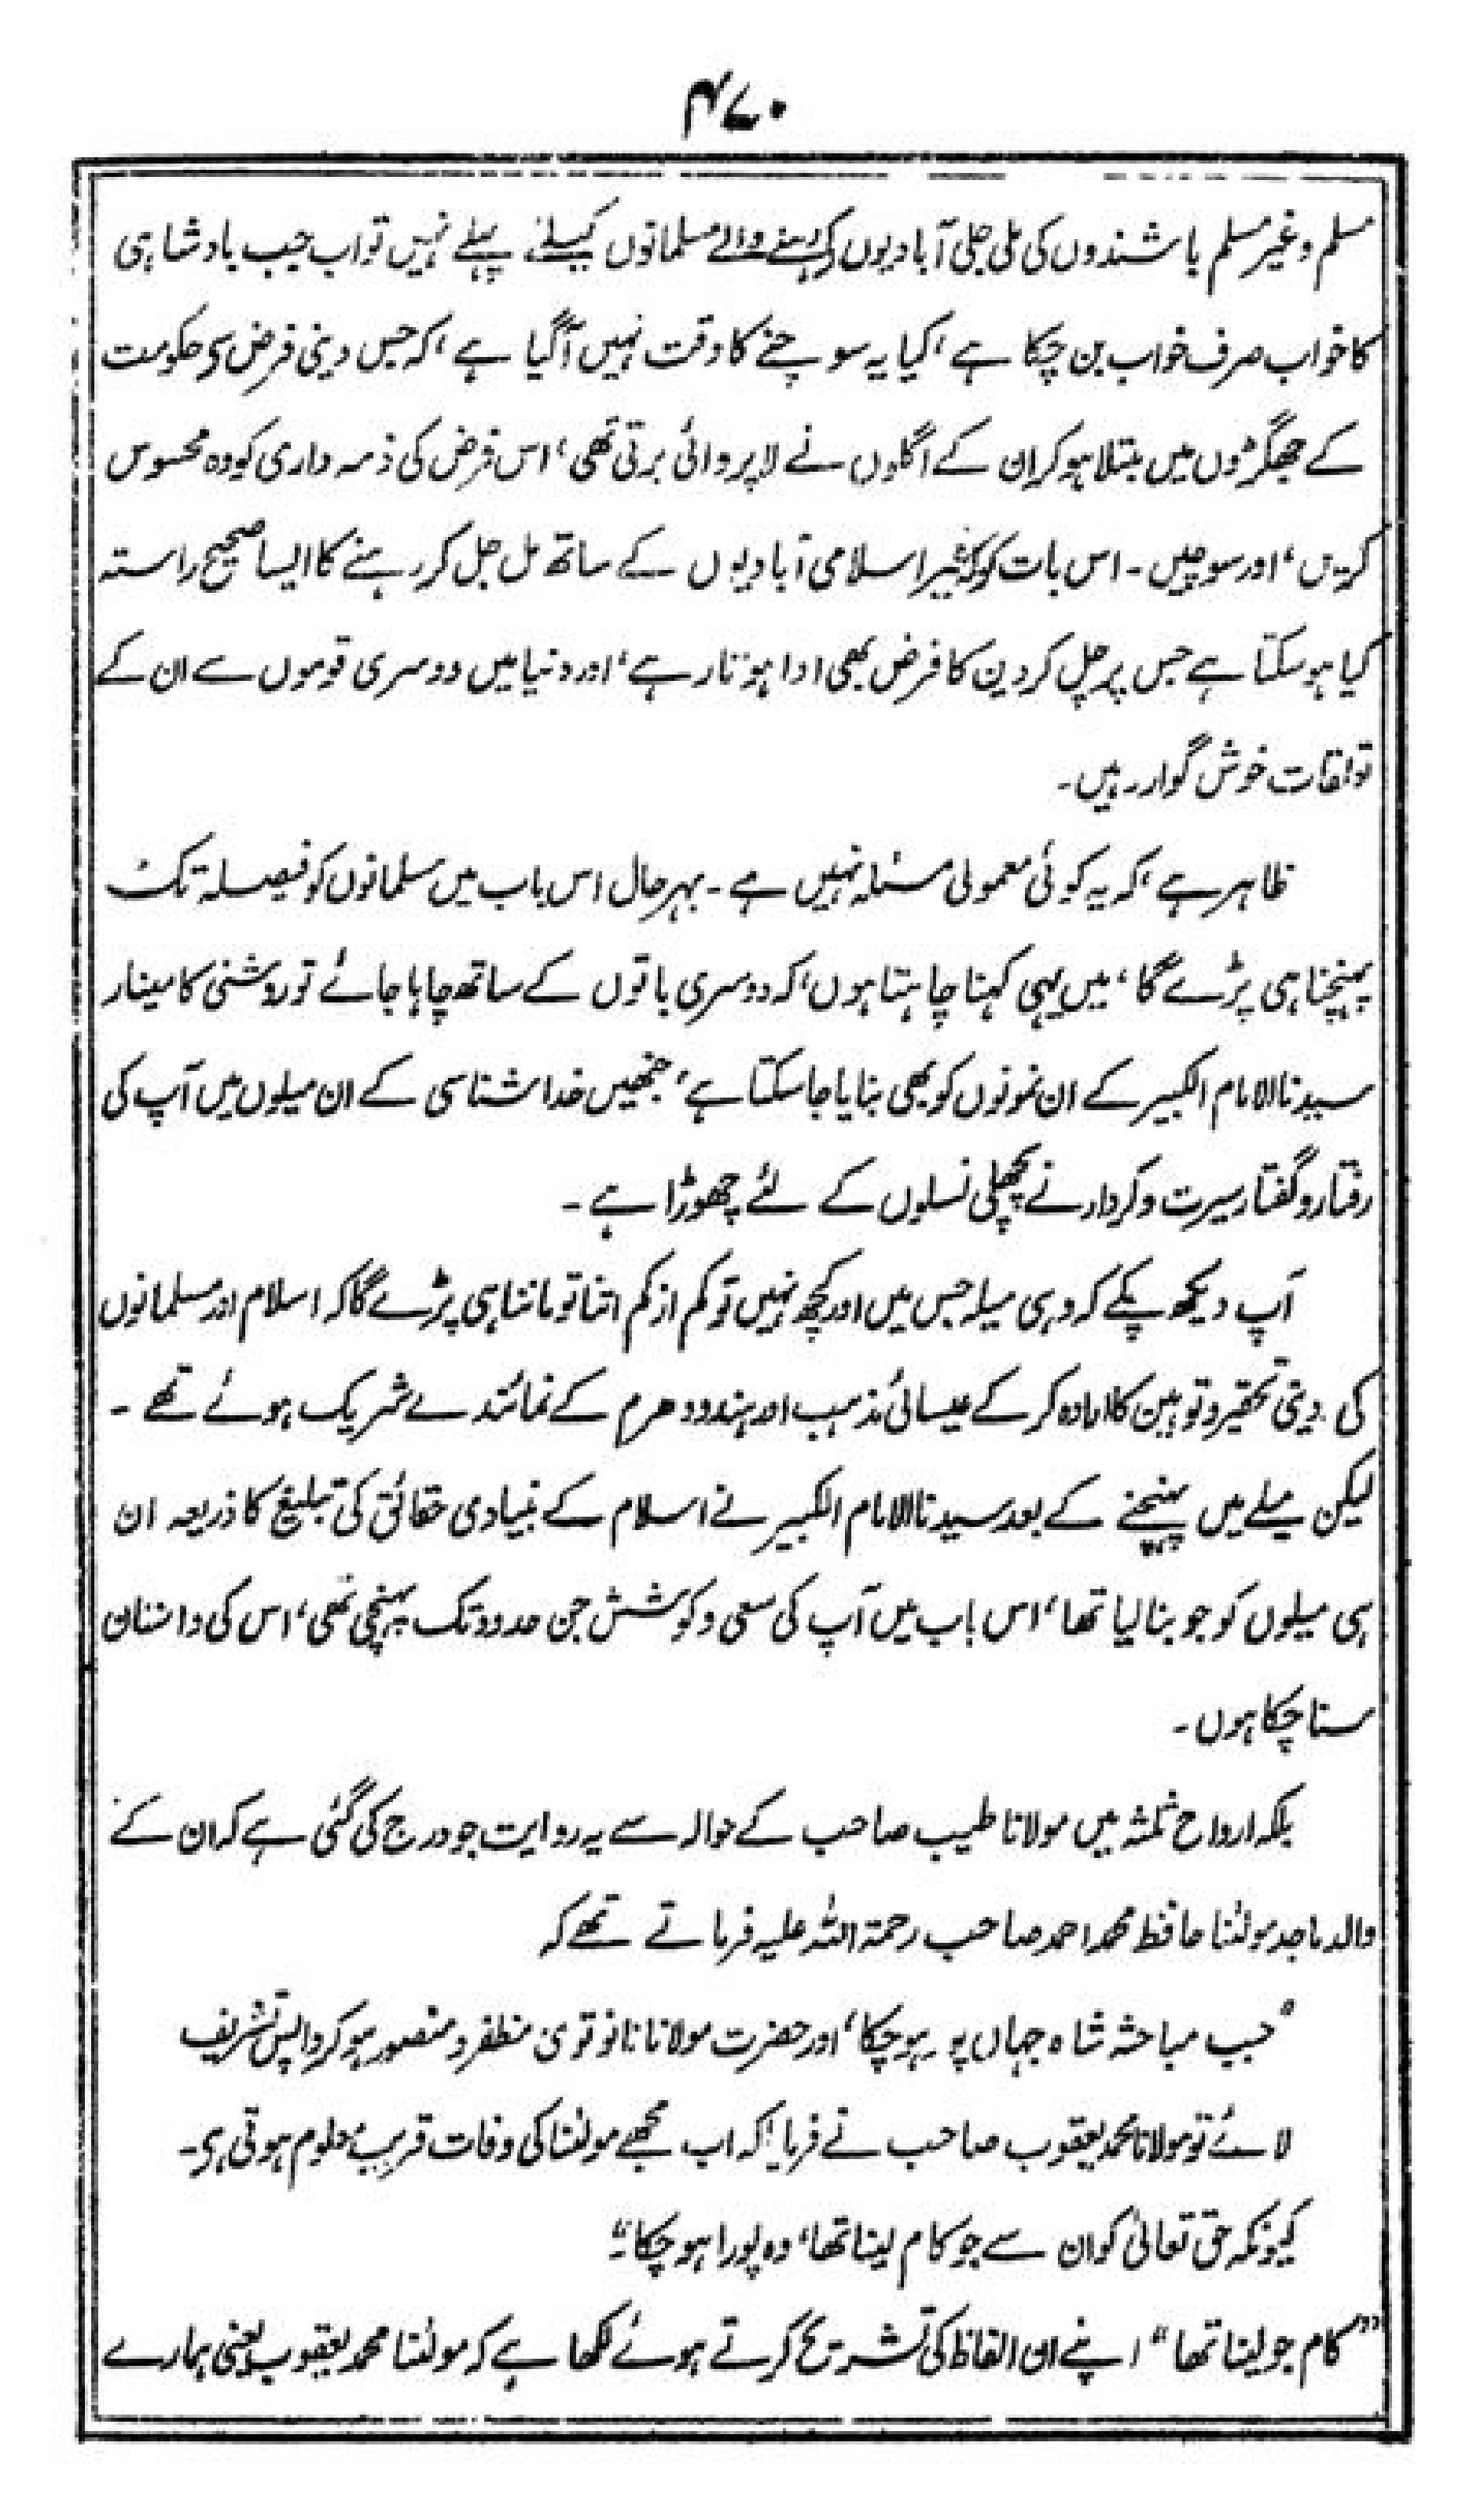 ۴۷۰
مسلم وغیر مسلم باشندوں کی ملی جلی آبادیوں کے رہنے والے مسلمانوں کیلئے پہلے نہیں تو اب جب بادشاہی
کا خواب صرف خواب بن چکا ہے، کیا یہ سوچنے کا وقت نہیں آگیا ہے، کہ جس دینی فرض سے حکومت
کے جھگڑوں میں مبتلا ہوکر ان کے اگلوں نے لاپروائی برتی تھی، اس فرض کی ذمہ داری کو وہ محسوس
کریں، اور سوچیں۔ اس بات کو کہ غیر اسلامی آبادیوں کے ساتھ مل جل کر رہنے کا ایسا صحیح راستہ
کیا ہوسکتا ہے جس پر چل کر دین کا فرض بھی ادا ہوتا رہے، اور دنیا میں دوسری قوموں سے ان کے
تعلقات خوش گوار رہیں۔
ظاہر ہے، کہ یہ کوئی معمولی مسئلہ نہیں ہے۔ بہرحال اس باب میں مسلمانوں کو فیصلہ تک
پہنچنا ہی پڑے گا، میں یہی کہنا چاہتا ہوں، کہ دوسری باتوں کے ساتھ چاہا جائے تو روشنی کا مینار
سیدنا الامام الکبیر کے ان نمونوں کو بھی بنایا جاسکتا ہے، جنھیں خدا شناسی کے ان میلوں میں آپ کی
رفتار و گفتار سیرت و کردار نے پچھلی نسلوں کے لئے چھوڑا ہے۔
آپ دیکھ چکے کہ وہی میلہ جس میں اور کچھ نہیں تو کم از کم اتنا تو ماننا ہی پڑے گا کہ اسلام اور مسلمانوں
کی دینی تحقیر و توہین کا ارادہ کر کے عیسائی مذہب اور ہندو دھرم کے نمائندے شریک ہوئے تھے۔
لیکن میلے میں پہنچنے کے بعد سیدنا الامام الکبیر نے اسلام کے بنیادی حقائق کی تبلیغ کا ذریعہ ان
ہی میلوں کو جو بنا لیا تھا، اس باب میں آپ کی سعی و کوشش جن حدود تک پہنچی تھی، اس کی داستان
سنا چکا ہوں۔
بلکہ ارواح ثلثہ میں مولانا طیب صاحب کے حوالہ سے یہ روایت جو درج کی گئی ہے کہ ان کے
والد ماجد مولٰنا حافظ محمد احمد صاحب رحمۃ اللہ علیہ فرماتے تھے کہ
"جب مباحثہ شاہ جہاں پور ہوچکا، اور حضرت مولانا نانوتوی مظفر و منصور ہوکر واپس تشریف
لائے تو مولانا محمد یعقوب صاحب نے فرمایا کہ اب مجھے مولٰنا کی وفات قریب معلوم ہوتی ہے۔
کیونکہ حق تعالیٰ کو ان سے جو کام لینا تھا، وہ پورا ہوچکا۔"
"کام جو لینا تھا" اپنے ان الفاظ کی تشریح کرتے ہوئے لکھا ہے کہ مولٰنا محمد یعقوب یعنی ہمارے